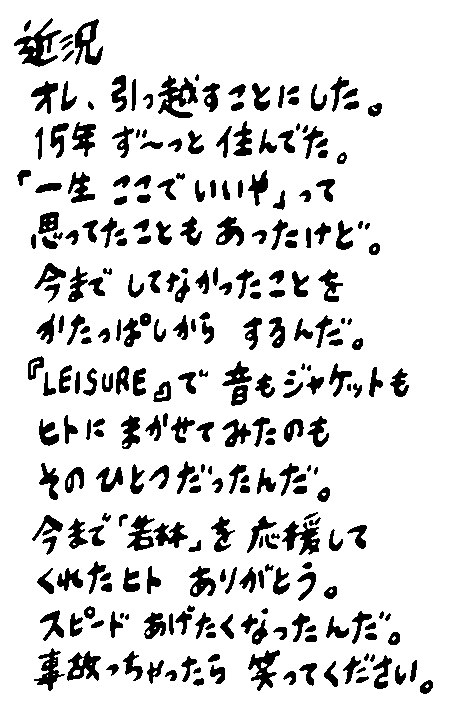 近況
オレ、引っ越すことにした。
15年 ず〜っと 住んでた。
「一生 ここで いいや」って
思ってたことも あったけど。
今まで してなかったことを
かたっぱしから するんだ。
『LEISURE』で 音もジャケットも
ヒトに まかせてみたのも
その ひとつだったんだ。
今まで「若林」を 応援して
くれたヒト ありがとう。
スピード あげたくなったんだ。
事故っちゃったら 笑ってください。